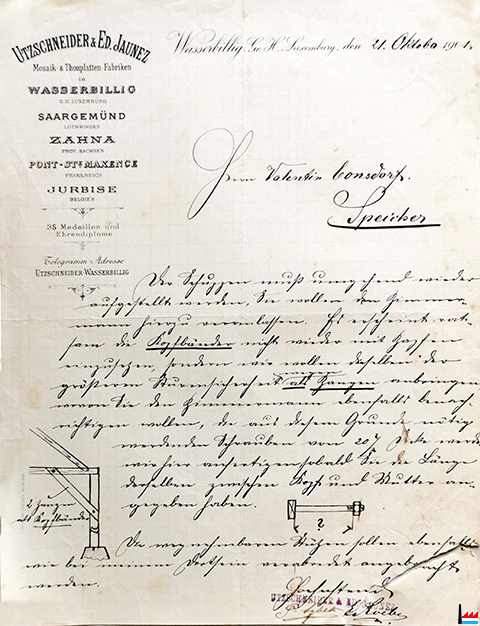 UTZSCHNEIDER & ED. JAUNEZ
Mosaik- & Thonplatten-Fabriken
in
WASSERBILLIG
G.H. LUXEMBURG
SAARGEMÜND
LOTHRINGEN
ZAHNA
PROV. SACHSEN
PONT-STE MAXENCE
FRANKREICH
JURBISE
BELGIEN
35 Medaillen und
Ehrendiplome
Telegramm-Adresse
UTZSCHNEIDER-WASSERBILLIG
Wasserbillig, Gr. H. Luxemburg, den 21. Oktober 1901.
Herrn Valentin Consdorf.
Speicher
Der Schuppen muß umgehend wieder
aufgestellt werden, Sie wollen den Zimmer-
mann hierzu veranlassen. Es erscheint rat-
sam die Kopfbänder nicht wieder mit Zapfen
einzusetzen, sondern wir wollen dieselben der
größeren Sturmsicherheit als Zangen anbringen
wovon Sie den Zimmermann ebenfalls benach-
richtigen wollen, die aus diesem Grunde nötig
werdenden Schrauben von 20 Stärke werden
wir hier anfertigen sobald Sie die Länge
derselben zwischen Kopf und Mutter an-
gegeben haben.
2 Zangen
als Kopfbänder
?
Die wegnehmbaren Stützen sollen ebenfalls
wie bei einem verbandet angebracht
werden.
Hochachtend
UTZSCHNEIDER & ED. JAUNEZ